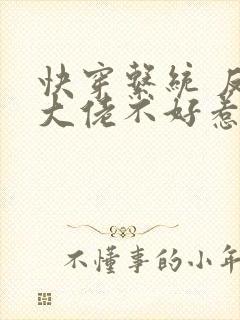 快穿繫統 反
大佬不好惹
不懂事的小年